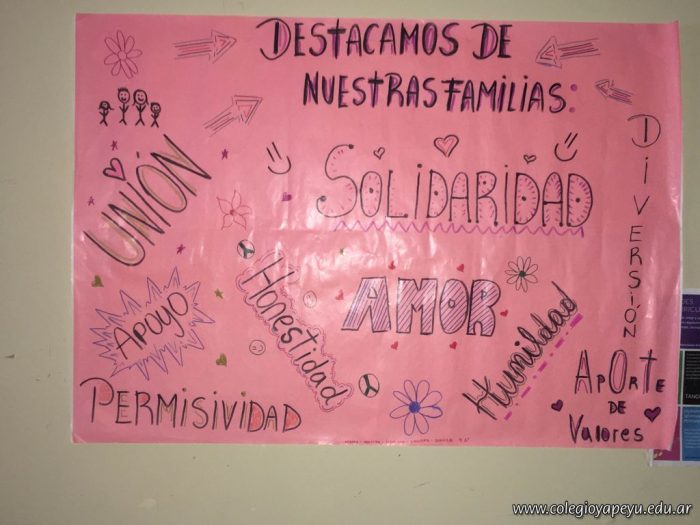 DESTACAMOS DE
NUESTRAS FAMILIAS:
UNIÓN
SOLIDARIDAD
DIVERSIÓN
Honestidad
AMOR
Humildad
APOYO
PERMISIVIDAD
APORTE
DE
Valores
www.colegioyapeyu.edu.ar